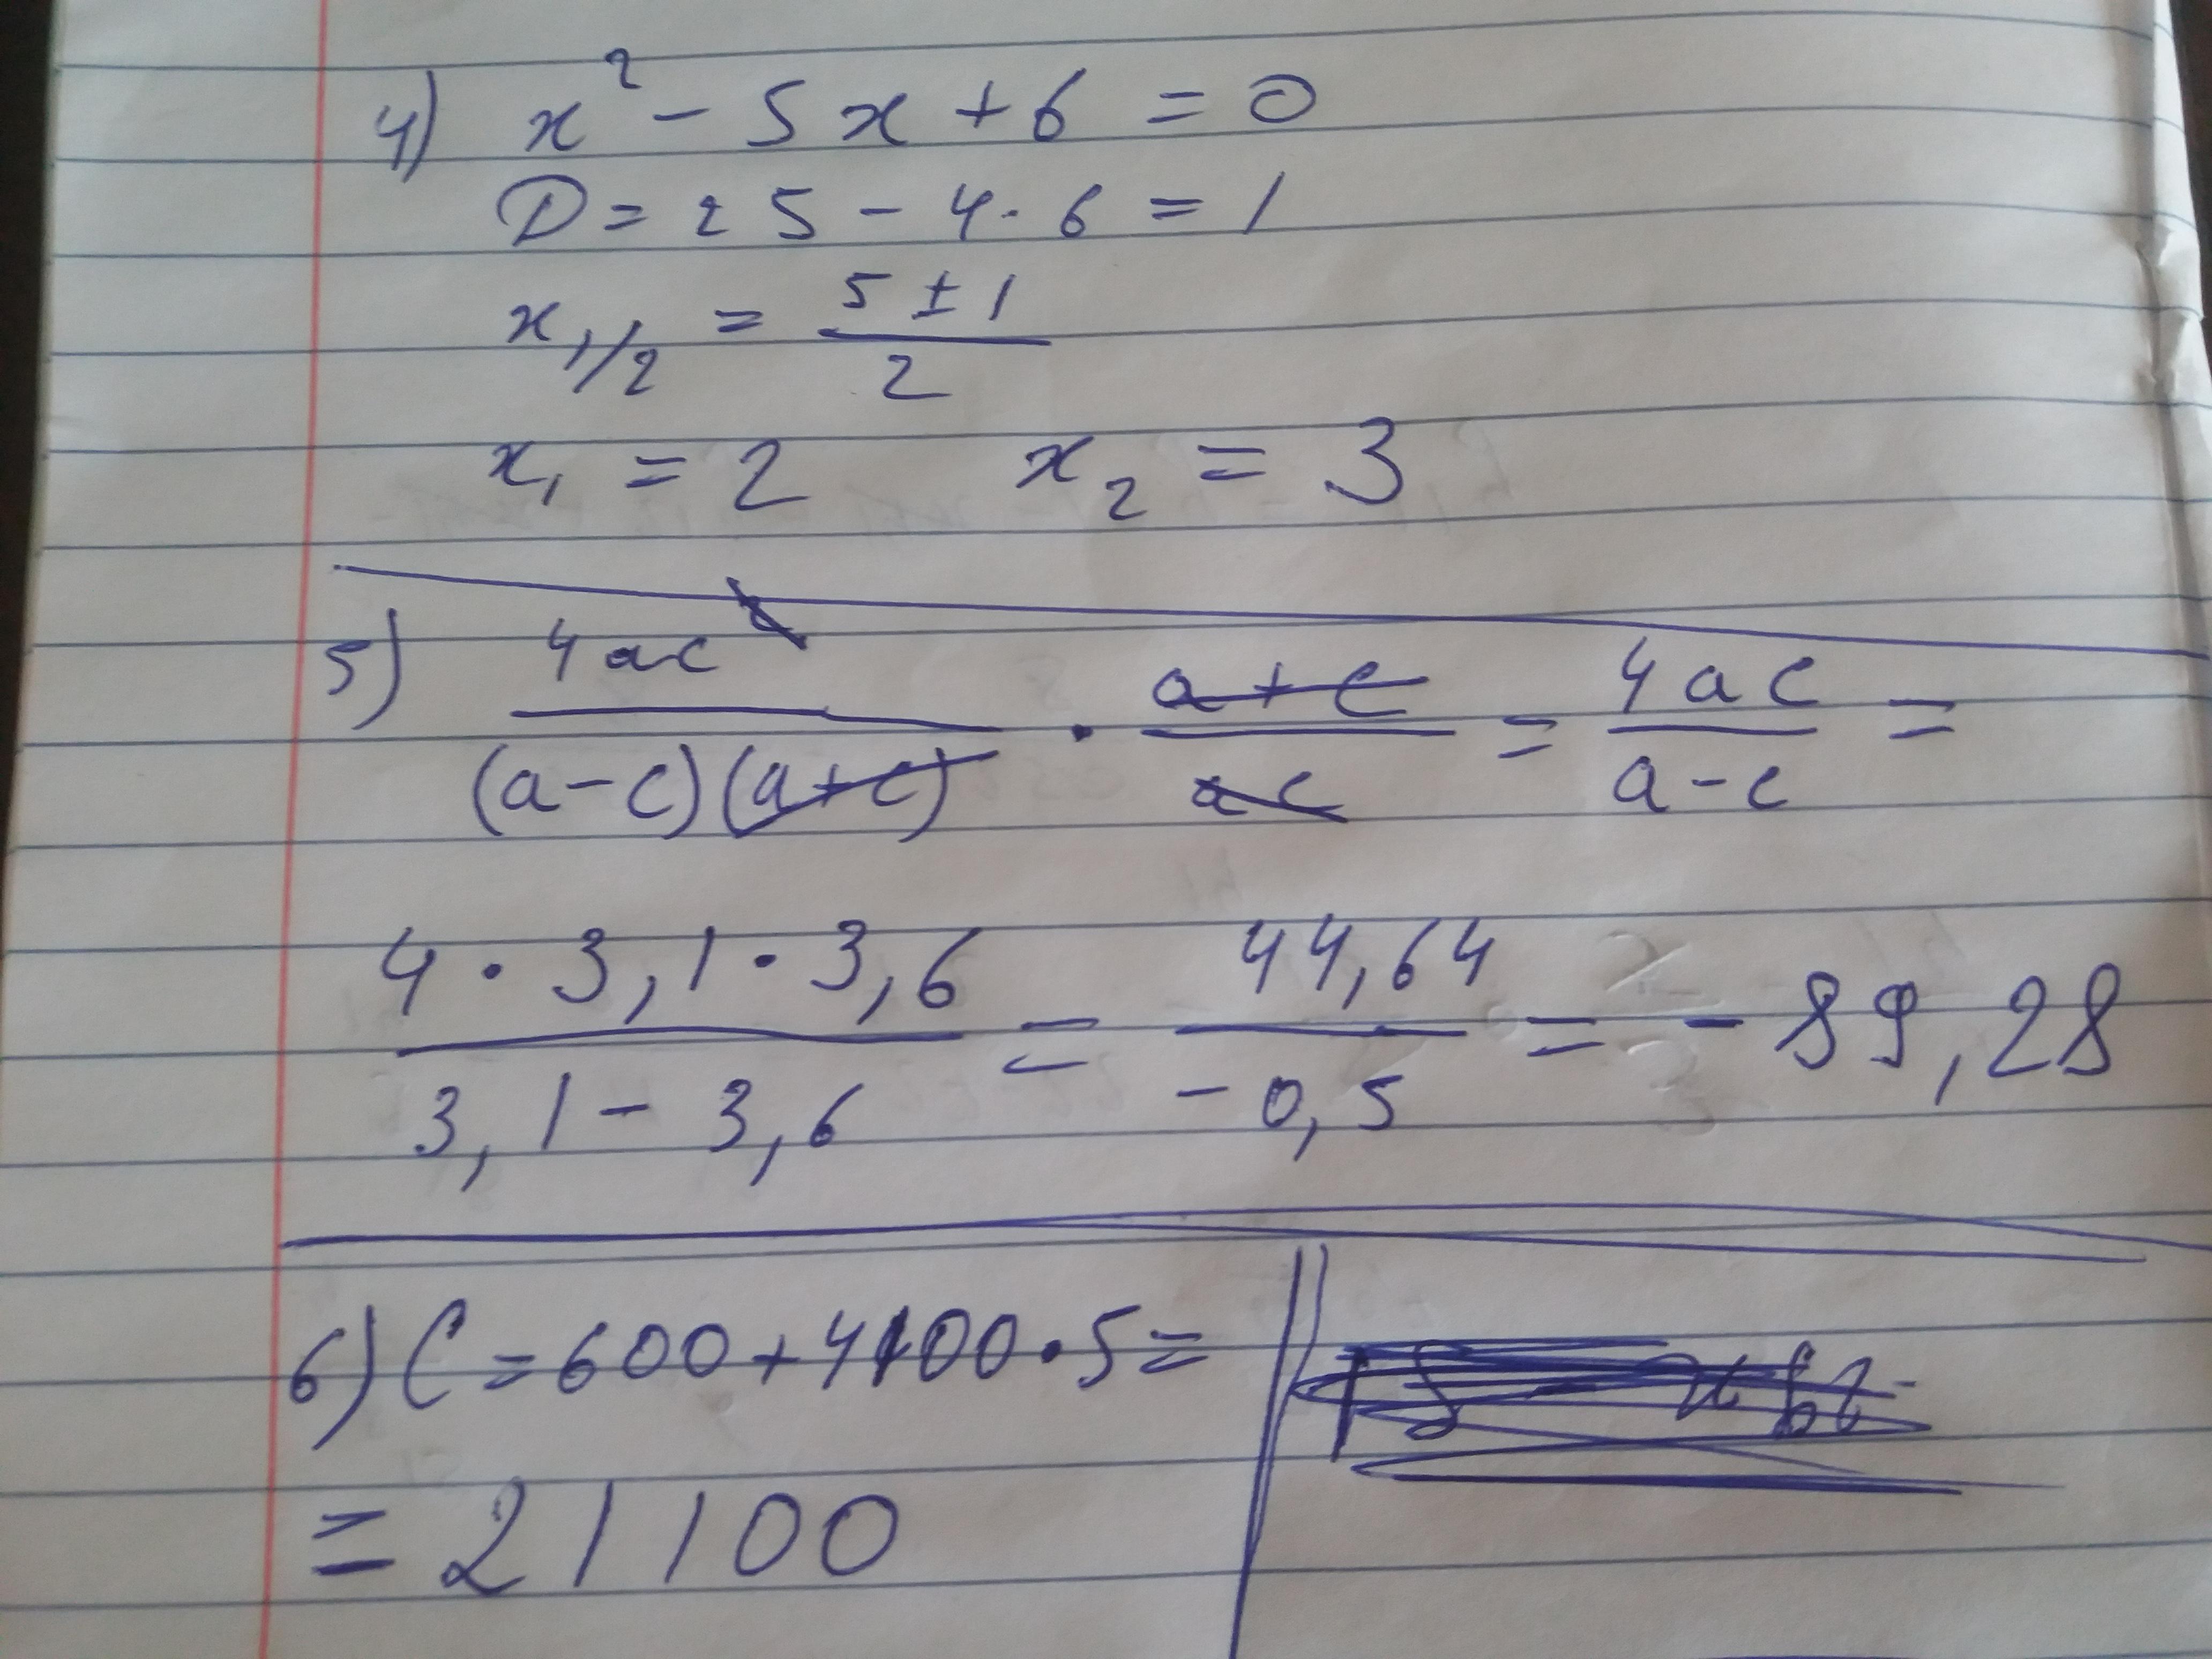 4) x² - 5x + 6 = 0
D = 25 - 4 · 6 = 1
x₁/₂ = (5 ± 1)/2
x₁ = 2 x₂ = 3
5) 4ac²/((a-c)(a+c)) · (a+c)/(ac) = 4ac/(a-c) =
(4 · 3,1 · 3,6)/(3,1 - 3,6) = 44,64/(-0,5) = -89,28
6) C = 600 + 4100 · 5 =
= 21100